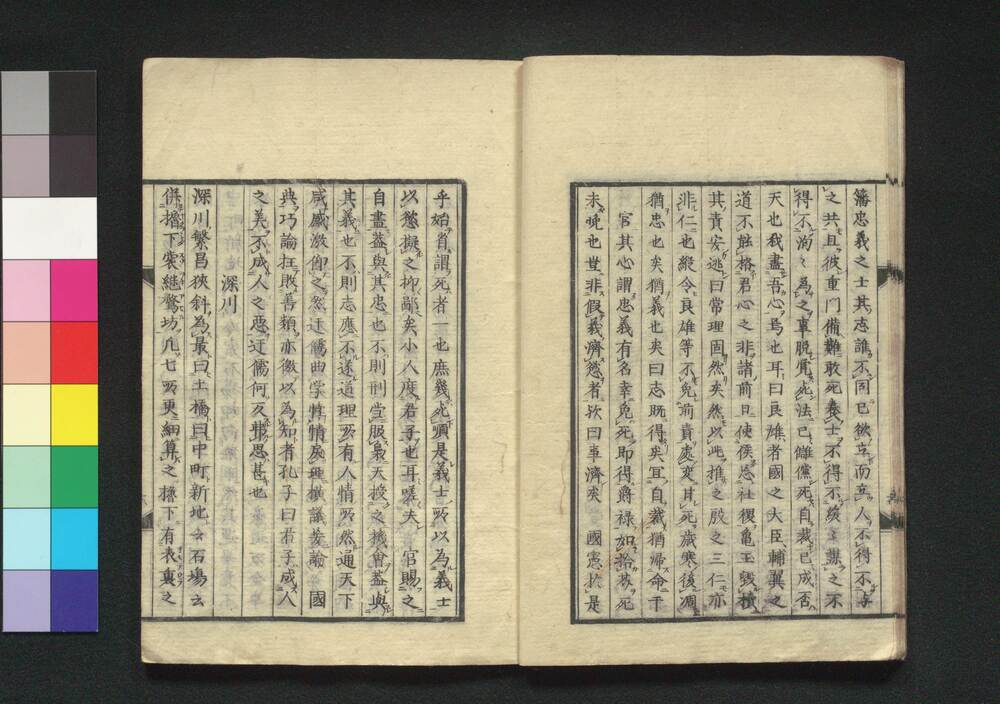 籓忠義之士其志誰不同已欲立而立人不得不与
之共且彼重門備難敢死養士不得不数々謀之不
得不淘々為之單脱質死法已雖儻死自裁已成否
天也我盡吾心焉也耳曰良雄者國之大臣輔翼之
道不能格君心之非諸前日使侯怒社稷亀玉毀櫝
其責安逃曰常理固然矣然以此推之殷之三仁亦
非仁也縱令良雄等不免前責處変其死歳寒後凋
猶忠也矣猶義也矣曰志既得矣宜自裁猶帰命于
官其心謂忠義有名幸免死即得爵禄如拾芥死
未晩也豈非假義濟慾者欤曰事濟矣 國憲於是
乎始肯謂死者一也庶幾死順是義士所以為義士
以慾擬之抑鄙矣小人度君子也耳嚱夫 官賜之
自盡蓋與其忠也不則刑當服梟天授之機會蓋與
其義也不則志應不遂道理所有人情所然通天下
咸感激仰之然迂儒曲学悖情戻理横議妄論 國
典巧論抂敗善類亦徼以為知者孔子曰君子成人
之美不成人之悪迂儒何友弗思甚也
深川
深川繁昌狹斜為最曰土橋曰中町新地云石場云
併櫓下裾継鷲坊凡七所更細算之櫓下有表裏之